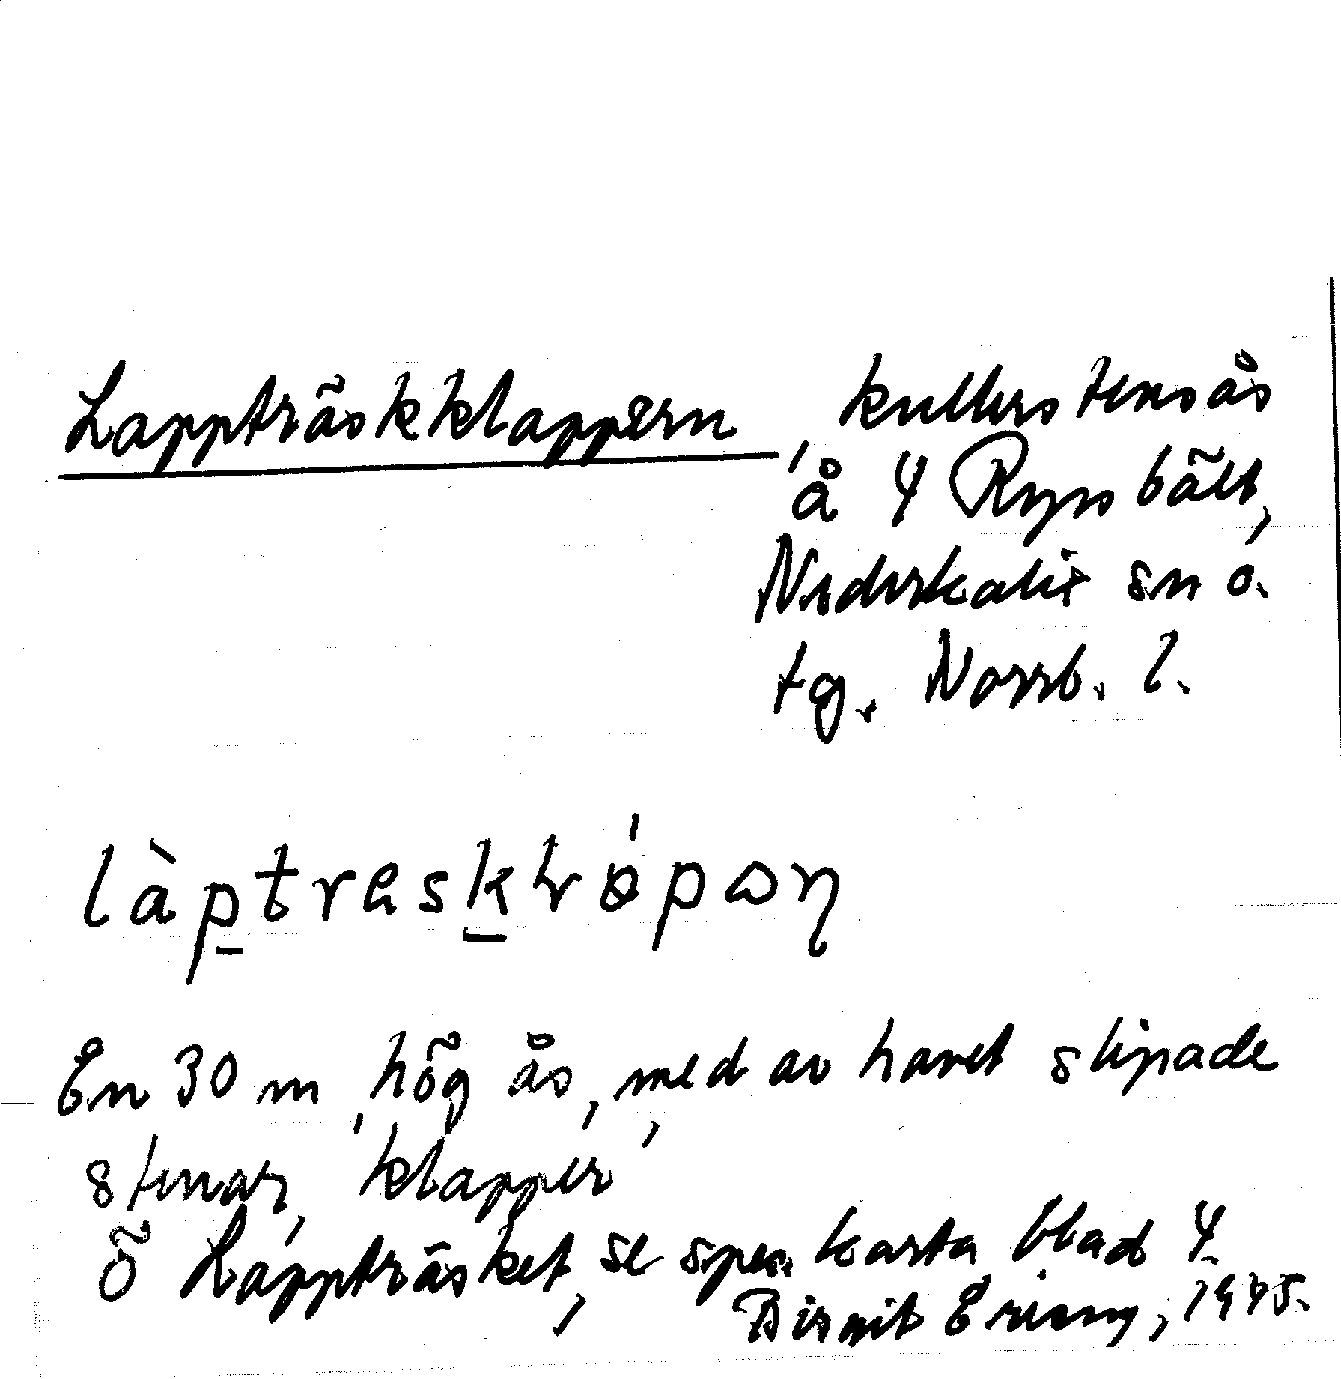 Lappträskklappern, kullerstensås
å 4 Rysbält,
Nederkalix sn o.
tg. Norrb. l.
En 30 m hög ås, med av havet slipade
stenar, 'klapper'
ö Lappträsket, se spec. karta blad 4.
Birgit Ericng, 1945.